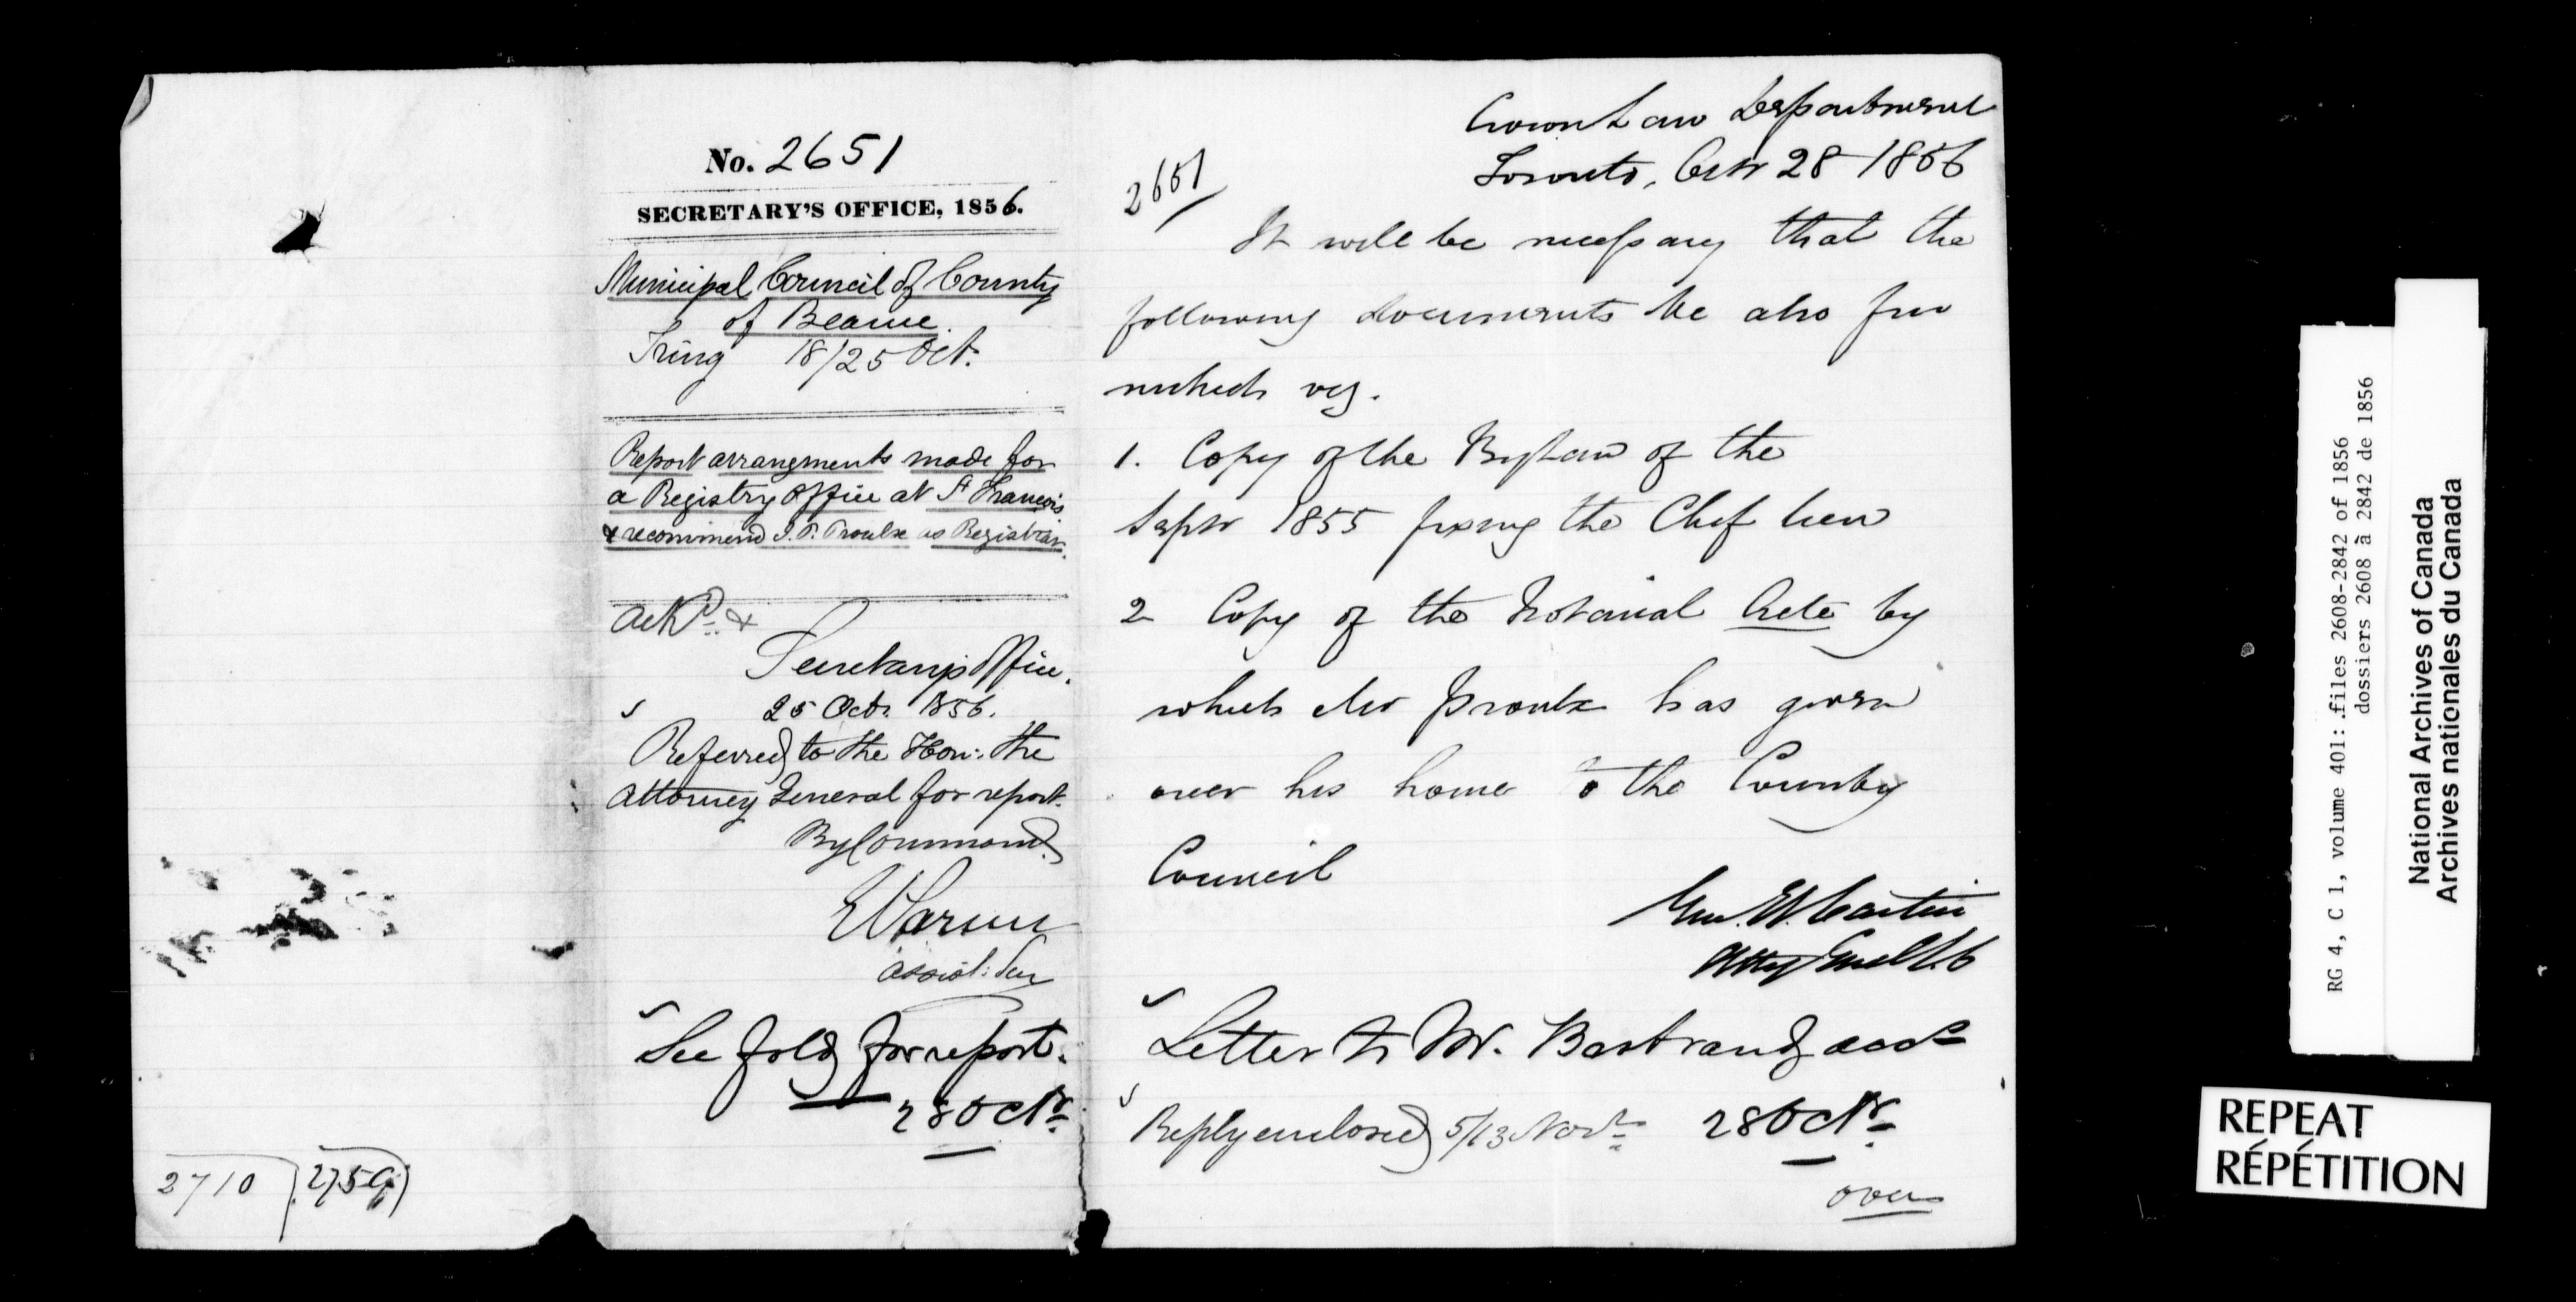 No. 2651
SECRETARY'S OFFICE, 1856.
Municipal Council of County
of Beauce.
Tring 18/25 Oct.
Report arrangements made for
a Registry Office at St Francois
& recommend J. P. Proulx as Registrar.
Ackd. &
Secretary's Office.
25 Octr. 1856.
Referred to the Hon: the
Attorney General for report.
By Command
E Parent
Assist: Sec
See fold for report.
28 Octr.
2710 2759
Crown Law Department
Toronto, Octr 28 1856
2651
It will be necessary that the
following documents be also fur
nished viz.
1. Copy of the By Law of the
Septr 1855 fixing the Chef lieu
2 Copy of the Notarial Acte by
which Mr Proulx has given
over his home to the County
Council
Geo. Et. Cartier
Atty Genl L.C
Letter to Mr. Bertrand accd
28 Octr.
Reply enclosed 5/13 Novr.
over
RG 4, C 1, volume 401: files 2608-2842 of 1856
dossiers 2608 à 2842 de 1856
National Archives of Canada
Archives nationales du Canada
REPEAT
RÉPÉTITION